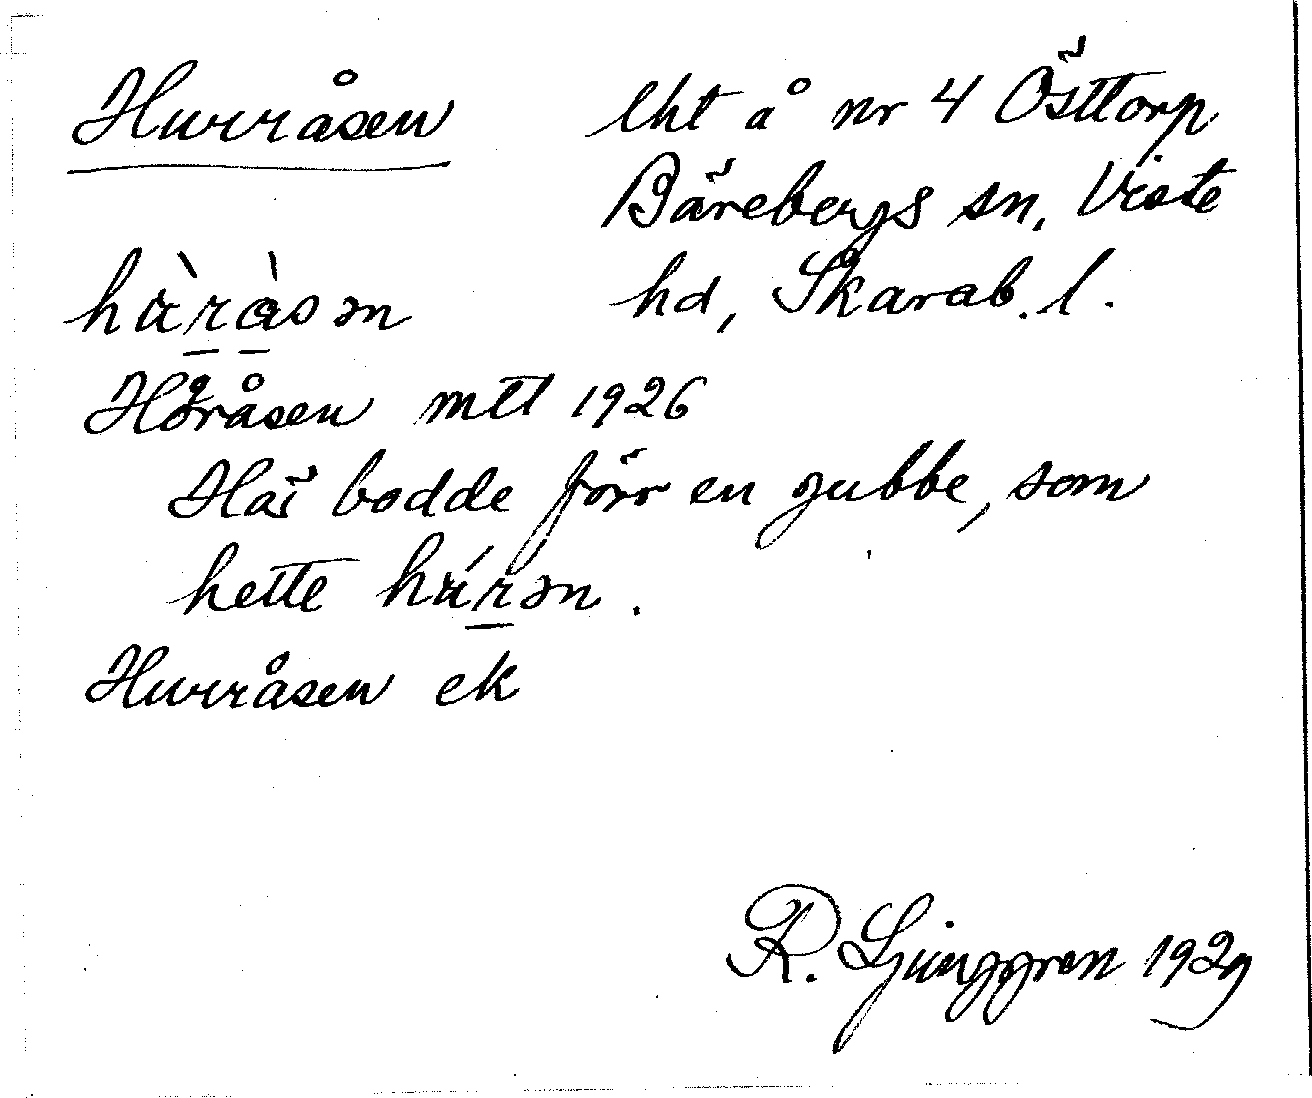 Hurråsen
lht å nr 4 Östtorp
Bärebergs sn, Viste
hd, Skarab. l.
hùràsən
Horåsen mtl 1926
Här bodde förr en gubbe, som
hette húrən.
Hurråsen ek
R. Ljunggren 1929